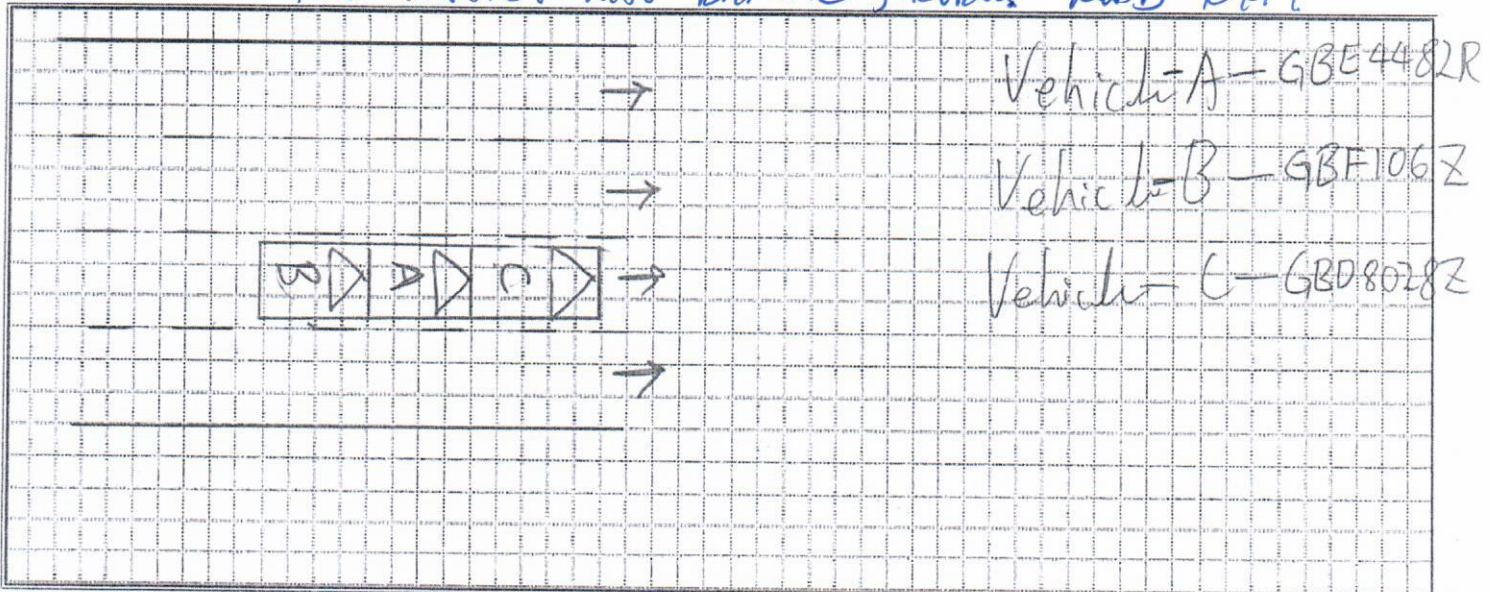 Vehicle A - GBE4482R
Vehicle B - GBF7106Z
Vehicle C - GBD8028Z
B A C